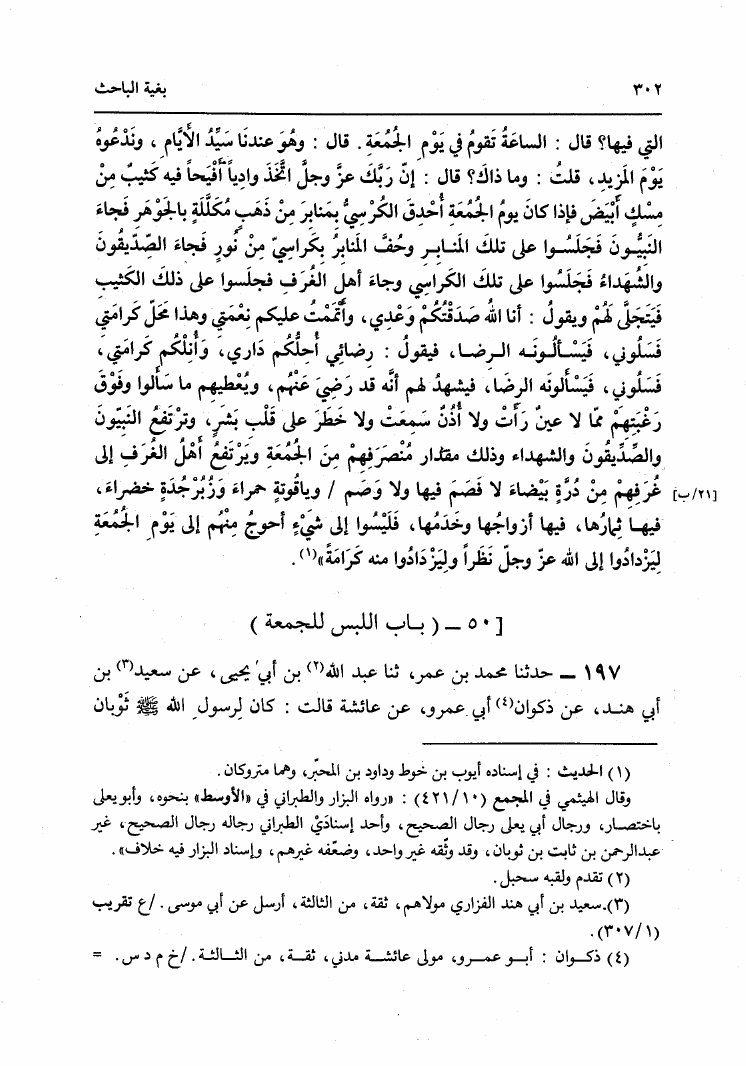 ٣٠٢ بغية الباحث
التي فيها؟ قال : الساعَةُ تَقومُ في يَوْمِ الجُمُعَةِ. قال : وهُوَ عندنَا سَيِّدُ الأَيَّامِ ، ونَدْعُوهُ
يَوْمَ المَزِيدِ، قلتُ : وما ذاكَ؟ قال : إنّ رَبَّكَ عزَّ وجلَّ اتَّخَذَ وادِياً أَفْيَحاً فيه كَثِيبٌ مِنْ
مِسْكٍ أَبْيَضَ فإذا كان يومُ الجُمُعَةِ أَحْدِقَ الكُرْسِيُّ بِمَنابِرَ مِنْ ذَهَبٍ مُكَلَّلَةٍ بالجَوْهَرِ فَجاءَ
النَبِيُّونَ فَجَلَسُوا على تلكَ المَنابِرِ وحُفَّ المَنابِرُ بِكَراسِيّ مِنْ نُورٍ فَجاءَ الصِّدِّيقُونَ
والشُهَدَاءُ فَجَلَسُوا على تلكَ الكَراسِي وجاءَ أهلِ الغُرَفِ فجلَسوا على ذلكَ الكَثِيبِ
فَيَتَجَلَّى لَهُمْ ويقولُ : أنا اللهُ صَدَقْتُكُمْ وَعْدِي، وأَتْمَمْتُ عليكم نِعْمَتِي وهذا مَحَلّ كَرامَتِي
فَسَلُوني، فَيَسْأَلُونَه الرضا، فيقولُ : رِضائِي أُحِلُّكُم دَارِي، وَأَنِلْكُم كَرامَتِي،
فَسَلُوني، فَيَسْأَلونَه الرِضا، فيشهدُ لهم أنَّه قد رَضِيَ عَنْهُم، ويُعْطِيهم ما سَأَلوا وفَوْقَ
رَغْبَتِهِمْ مّا لا عينٌ رَأَتْ ولا أُذُنٌ سَمِعَتْ ولا خَطَرَ على قَلْبِ بَشَرٍ، وترْتَفعُ النَبِيّونَ
والصِّدِّيقُونَ والشهداء وذلك مقدار مُنْصَرَفِهِمْ مِنَ الجُمُعَةِ ويَرْتَفِعُ أَهْلُ الغُرَفِ إلى
غُرَفِهِمْ مِنْ دُرَّةٍ بَيْضاءَ لا فَصَمَ فيها ولا وَصَم / وياقُوتةٍ حمراءَ وَزُبَرْجُدَةٍ خضراءَ، [٢١/ب]
فيها ثِمارُها، فيها أزواجُها وخَدَمُها، فَلَيْسُوا إلى شَيْءٍ أحوجُ مِنْهُم إلى يَوْمِ الجُمُعَةِ
لِيَزْدادُوا إلى الله عزّ وجلّ نَظَراً ولِيَزْدَادُوا منه كَرَامَةً»(١).
[٥٠ ــ ( باب اللبس للجمعة )
١٩٧ ــ حدثنا محمد بن عمر، ثنا عبد الله(٢) بن أبي يحيى، عن سعيد(٣) بن
أبي هند، عن ذكوان(٤) أبي عمرو، عن عائشة قالت : كان لِرسولِ الله ﷺ ثَوْبان
(١) الحديث : في إسناده أيوب بن خوط وداود بن المحبّر، وهما متروكان.
وقال الهيثمي في المجمع (٤٢١/١٠) : «رواه البزار والطبراني في «الأوسط» بنحوه، وأبو يعلى
باختصار، ورجال أبي يعلى رجال الصحيح، وأحد إسنادَيْ الطبراني رجاله رجال الصحيح، غير
عبدالرحمن بن ثابت بن ثوبان، وقد وثّقه غير واحد، وضعّفه غيرهم، وإسناد البزار فيه خلاف».
(٢) تقدم ولقبه سحبل.
(٣).سعيد بن أبي هند الفزاري مولاهم، ثقة، من الثالثة، أرسل عن أبي موسى. /ع تقريب
(٣٠٧/١).
(٤) ذكوان : أبو عمرو، مولى عائشة مدني، ثقة، من الثالثة. /خ م د س. =